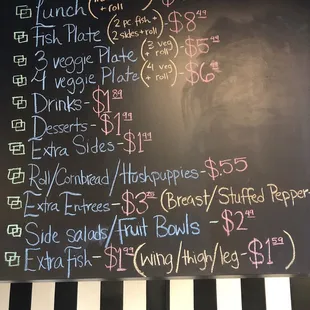 Lunch ( + roll
Fish Plate (2 pc fish + 2 sides + roll) - $8.49
3 veggie Plate (3 veg + roll) - $5.49
4 veggie Plate (4 veg + roll) - $6.49
Drinks - $1.89
Desserts - $1.99
Extra Sides - $1.99
Roll/Cornbread/Hushpuppies - $.55
Extra Entrees - $3 (Breast/Stuffed Pepper
Side salads/Fruit Bowls - $2.49
Extra Fish - $1.99 (wing/thigh/leg - $1.59)